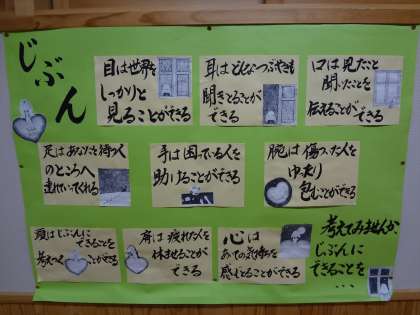 じぶん
目は世界を
しっかりと
見ることができる
耳はどんなつぶやきも
聞きとることが
できる
口は見たこと
聞いたことを
伝えることができる
足はあなたを待つ人
のところへ
連れていってくれる
手は困っている人を
助けることができる
腕は傷ついた人を
包むことができる
頭はじぶんに
できることを
考えつくことができる
肩は疲れた人を
休ませることが
できる
心は
感じとることができる
考えてみませんか
じぶんに
できることを
…